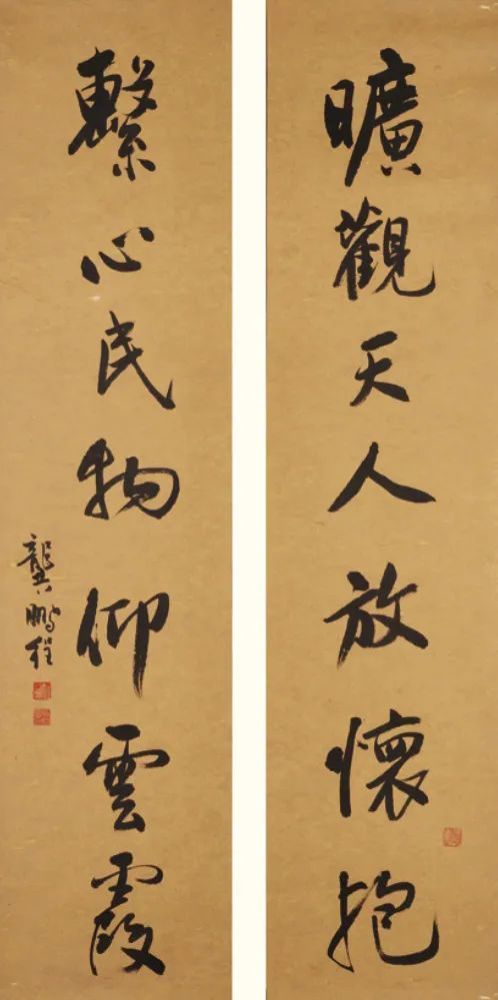 曠觀天人放懷抱
繫心民物仰雲霞
龔鵬程